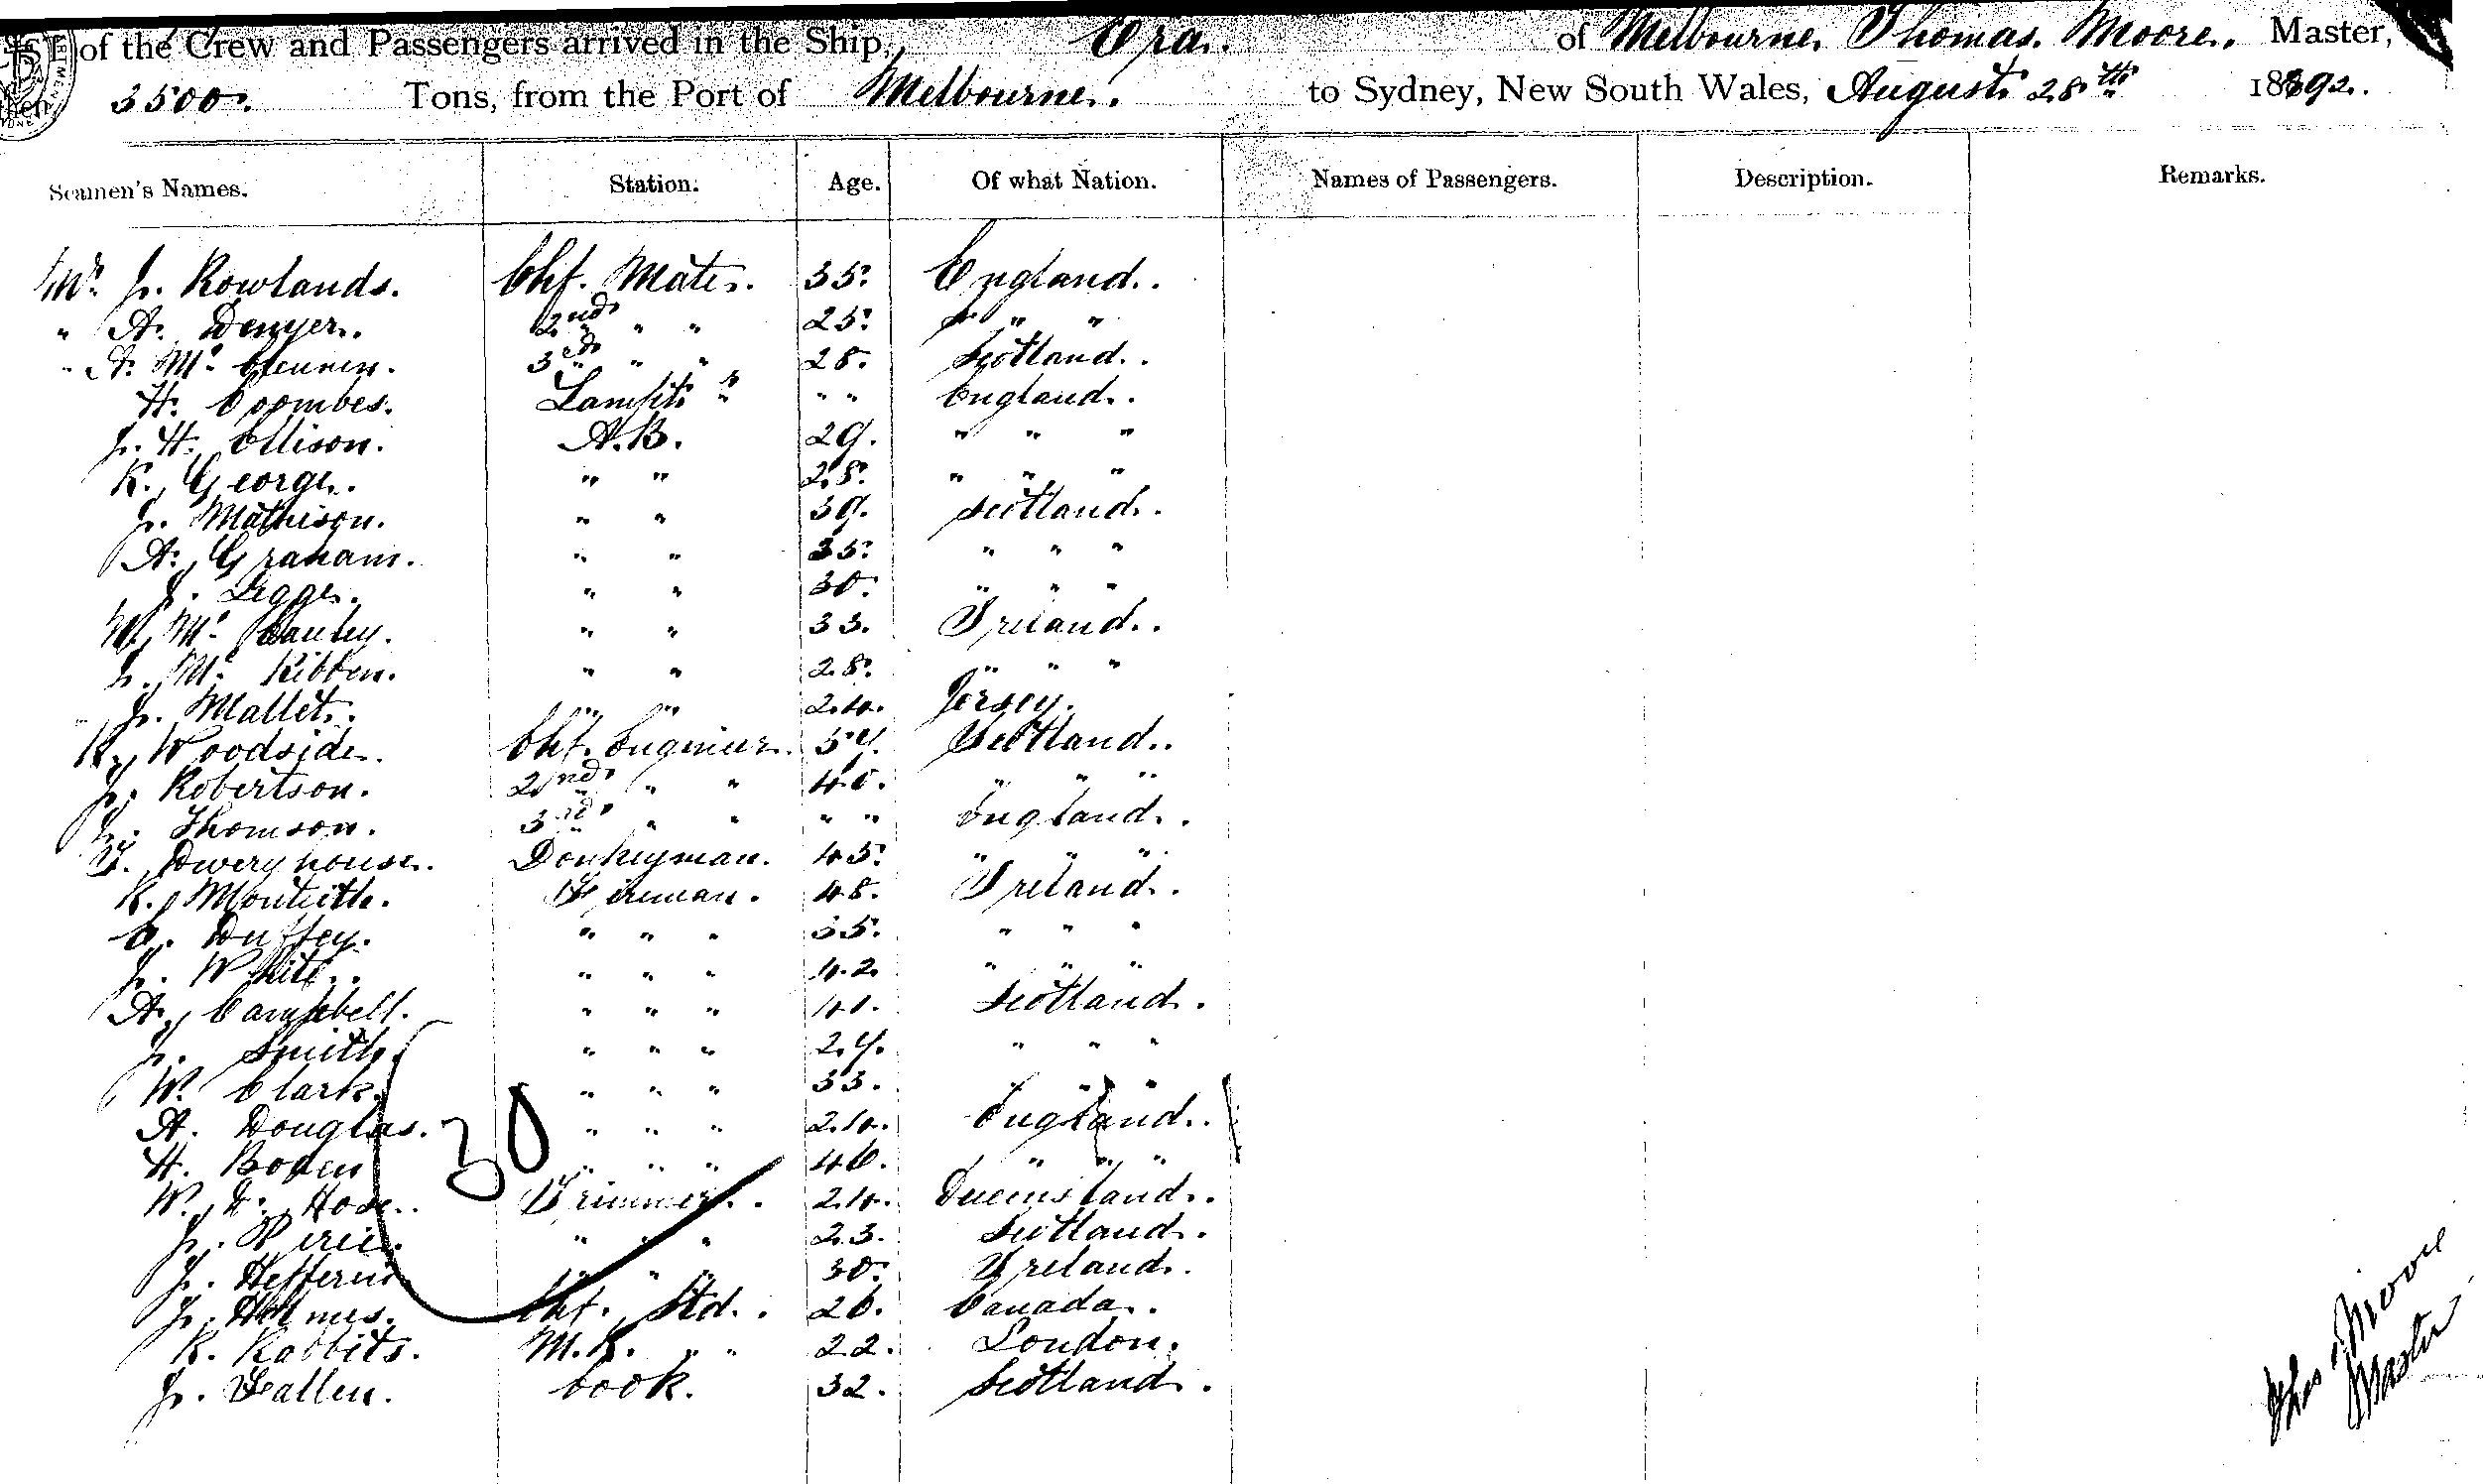 LIST of the Crew and Passengers arrived in the Ship, Era. of Melbourne. Thomas. Moore. Master,
3500. Tons, from the Port of Melbourne. to Sydney, New South Wales, August 28th 1892.
Seamen's Names. Station. Age. Of what Nation. Names of Passengers. Description. Remarks.
Mr J. Rowlands. Chf. Mate. 35. England.
" A. Denyer. 2nd " " 25. " " "
" A. Mc 3rd " " 28. Scotland.
H. Coombes. Lampts " " " England.
J. H. Ellison. A.B. 29. " " "
R. George. " " 28. " " "
J. Mathison. " " 39. Scotland.
A. Graham. " " 35. " " "
J. Legge. " " 30. " " "
W. Mc Cauley. " " 33. Ireland.
J. Mc Kibben. " " 28. " " "
J. Mallet. " " 24. Jersey.
R. Woodside. Chf. Engineer. 54. Scotland.
J. Robertson. 2nd " " 40. " " "
J. Thomson. 3rd " " " " England.
T. Dweryhouse. Donkeyman. 45. " " "
R. Monteith. Fireman. 48. Ireland.
C. Duffey. " " " 35. " " "
J. White. " " " 42. " " "
A. Campbell. " " " 41. Scotland.
J. Smith. " " " 24. " " "
W. Clark. " " " 33. " " "
A. Douglas. " " " 24. England.
H. Boden " " " 46. " " "
30
W. D. Hose. Trimmer. 24. Queensland.
J. Pirie. " " " 23. Scotland.
J. Heffernan " " " 30. Ireland.
J. Holmes. Chf. Std. 26. Canada.
R. Rabbits. M.R. " " 22. London.
J. Fallen. Cook. 32. Scotland.
Thos Moore
Master